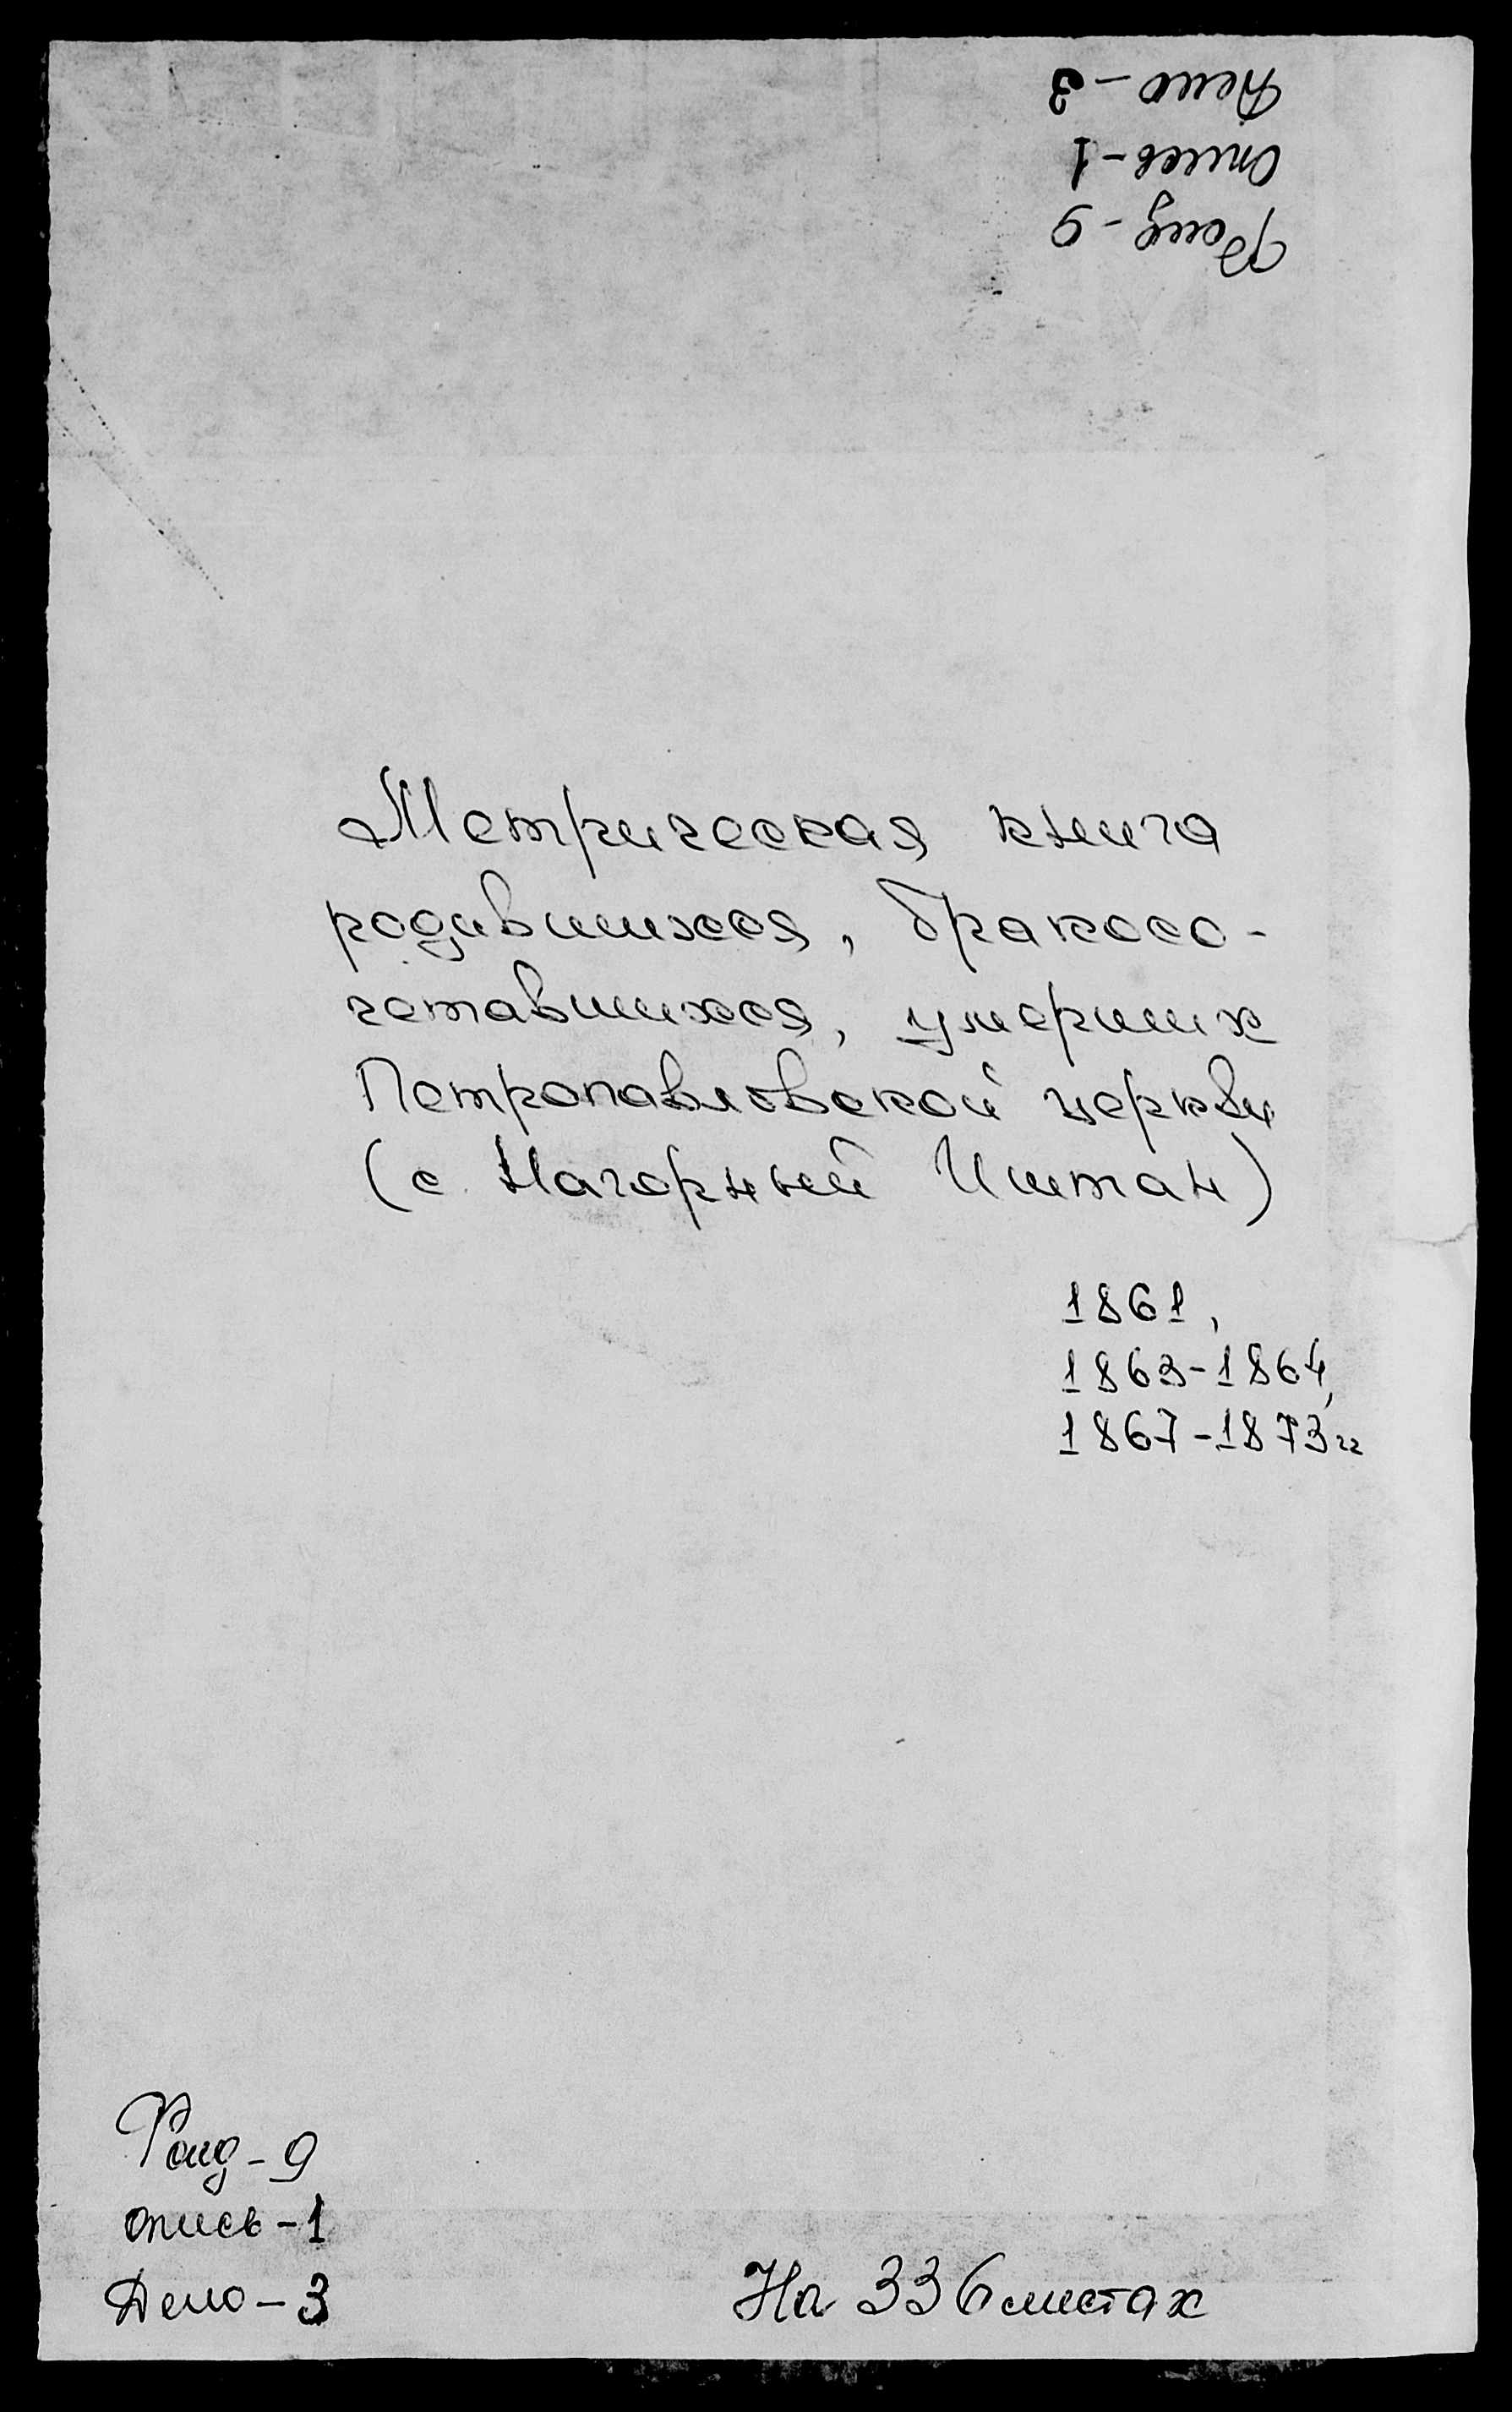 Фонд - 9
опись - 1
Дело - 3
Метрическая книга
родившихся, бракосо-
четавшихся, умерших
Петропавловской церкви
(с. Нагорный Иштан)
1861,
1863-1864,
1867-1873гг
Фонд - 9
опись - 1
Дело - 3
На 336 листах